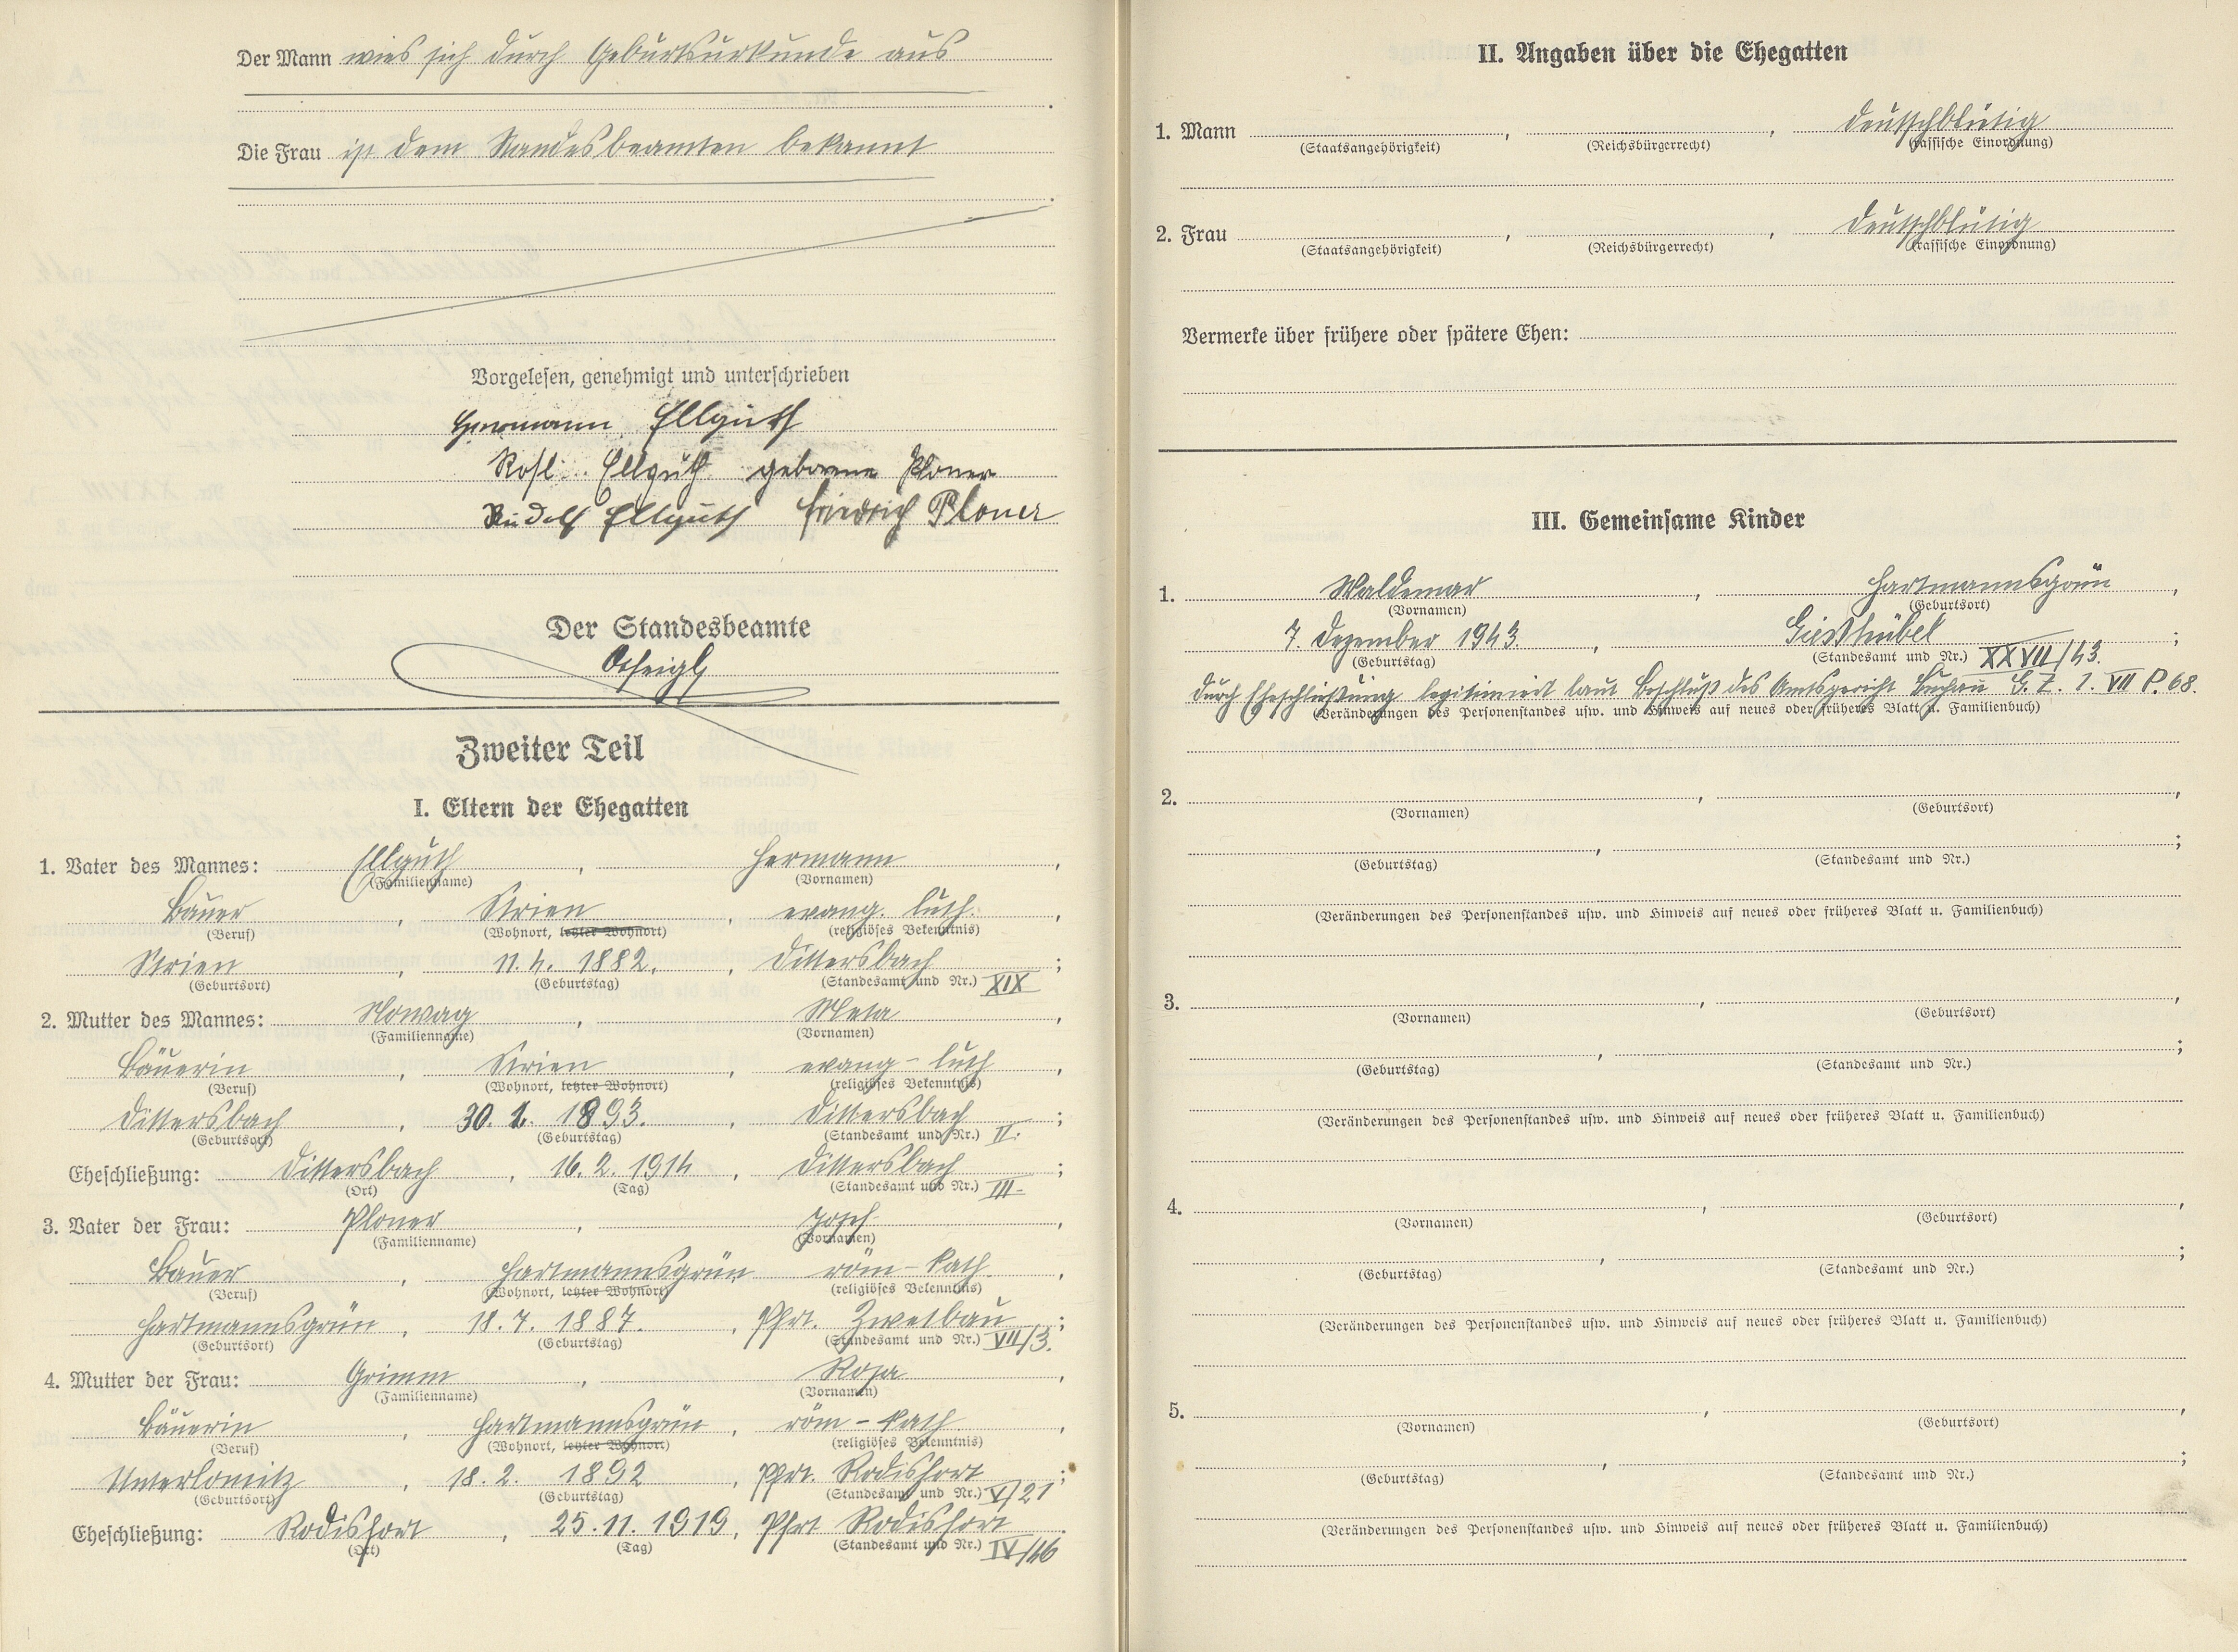 Der Mann wies sich durch Geburtsurkunde aus
Die Frau ist dem Standesbeamten bekannt
Vorgelesen, genehmigt und unterschrieben
Hermann Ellguth
Rosl Ellguth geborene Ploner
Rudolf Ellguth Friedrich Ploner
Der Standesbeamte
Zweiter Teil
I. Eltern der Ehegatten
1. Vater des Mannes: Ellguth, Hermann,
(Familienname) (Vornamen)
Bauer, Strien, evang. luth.,
(Beruf) (Wohnort, letzter Wohnort) (religiöses Bekenntnis)
Strien, 11. 4. 1882., Dittersbach;
(Geburtsort) (Geburtstag) (Standesamt und Nr.) XIX
2. Mutter des Mannes: Nowag, Meta,
(Familienname) (Vornamen)
Bäuerin, Strien, evang-luth,
(Beruf) (Wohnort, letzter Wohnort) (religiöses Bekenntnis)
Dittersbach, 30. 1. 1893., Dittersbach;
(Geburtsort) (Geburtstag) (Standesamt und Nr.) II.
Eheschließung: Dittersbach, 16. 2. 1914, Dittersbach;
(Ort) (Tag) (Standesamt und Nr.) III.
3. Vater der Frau: Ploner, Josef,
(Familienname) (Vornamen)
Bauer, Hartmannsgrün röm-kath.,
(Beruf) (Wohnort, letzter Wohnort) (religiöses Bekenntnis)
Hartmannsgrün, 18. 7. 1887., Pfrt. Zwetbau;
(Geburtsort) (Geburtstag) (Standesamt und Nr.) VII/3.
4. Mutter der Frau: Grimm, Rosa,
(Familienname) (Vornamen)
Bäuerin, Hartmannsgrün, röm-kath.,
(Beruf) (Wohnort, letzter Wohnort) (religiöses Bekenntnis)
Unterlomitz, 18. 2. 1892, Pfrt. Rodisfort;
(Geburtsort) (Geburtstag) (Standesamt und Nr.) V/21
Eheschließung: Rodisfort, 25. 11. 1919, Pfrt Rodisfort.
(Ort) (Tag) (Standesamt und Nr.) IV/46
II. Angaben über die Ehegatten
1. Mann , , deutschblütig
(Staatsangehörigkeit) (Reichsbürgerrecht) (rassische Einordnung)
2. Frau , , deutschblütig
(Staatsangehörigkeit) (Reichsbürgerrecht) (rassische Einordnung)
Vermerke über frühere oder spätere Ehen:
III. Gemeinsame Kinder
1. Waldemar, Hartmannsgrün,
(Vornamen) (Geburtsort)
7. Dezember 1943., Gießhübel;
(Geburtstag) (Standesamt und Nr.) XXVII/43.
durch Eheschließung legitimiert laut Beschluß des Amtsgericht Buchau G. Z. 1. VII P. 68.
(Veränderungen des Personenstandes usw. und Hinweis auf neues oder früheres Blatt u. Familienbuch)
2. , ,
(Vornamen) (Geburtsort)
, ;
(Geburtstag) (Standesamt und Nr.)
(Veränderungen des Personenstandes usw. und Hinweis auf neues oder früheres Blatt u. Familienbuch)
3. , ,
(Vornamen) (Geburtsort)
, ;
(Geburtstag) (Standesamt und Nr.)
(Veränderungen des Personenstandes usw. und Hinweis auf neues oder früheres Blatt u. Familienbuch)
4. , ,
(Vornamen) (Geburtsort)
, ;
(Geburtstag) (Standesamt und Nr.)
(Veränderungen des Personenstandes usw. und Hinweis auf neues oder früheres Blatt u. Familienbuch)
5. , ,
(Vornamen) (Geburtsort)
, ;
(Geburtstag) (Standesamt und Nr.)
(Veränderungen des Personenstandes usw. und Hinweis auf neues oder früheres Blatt u. Familienbuch)